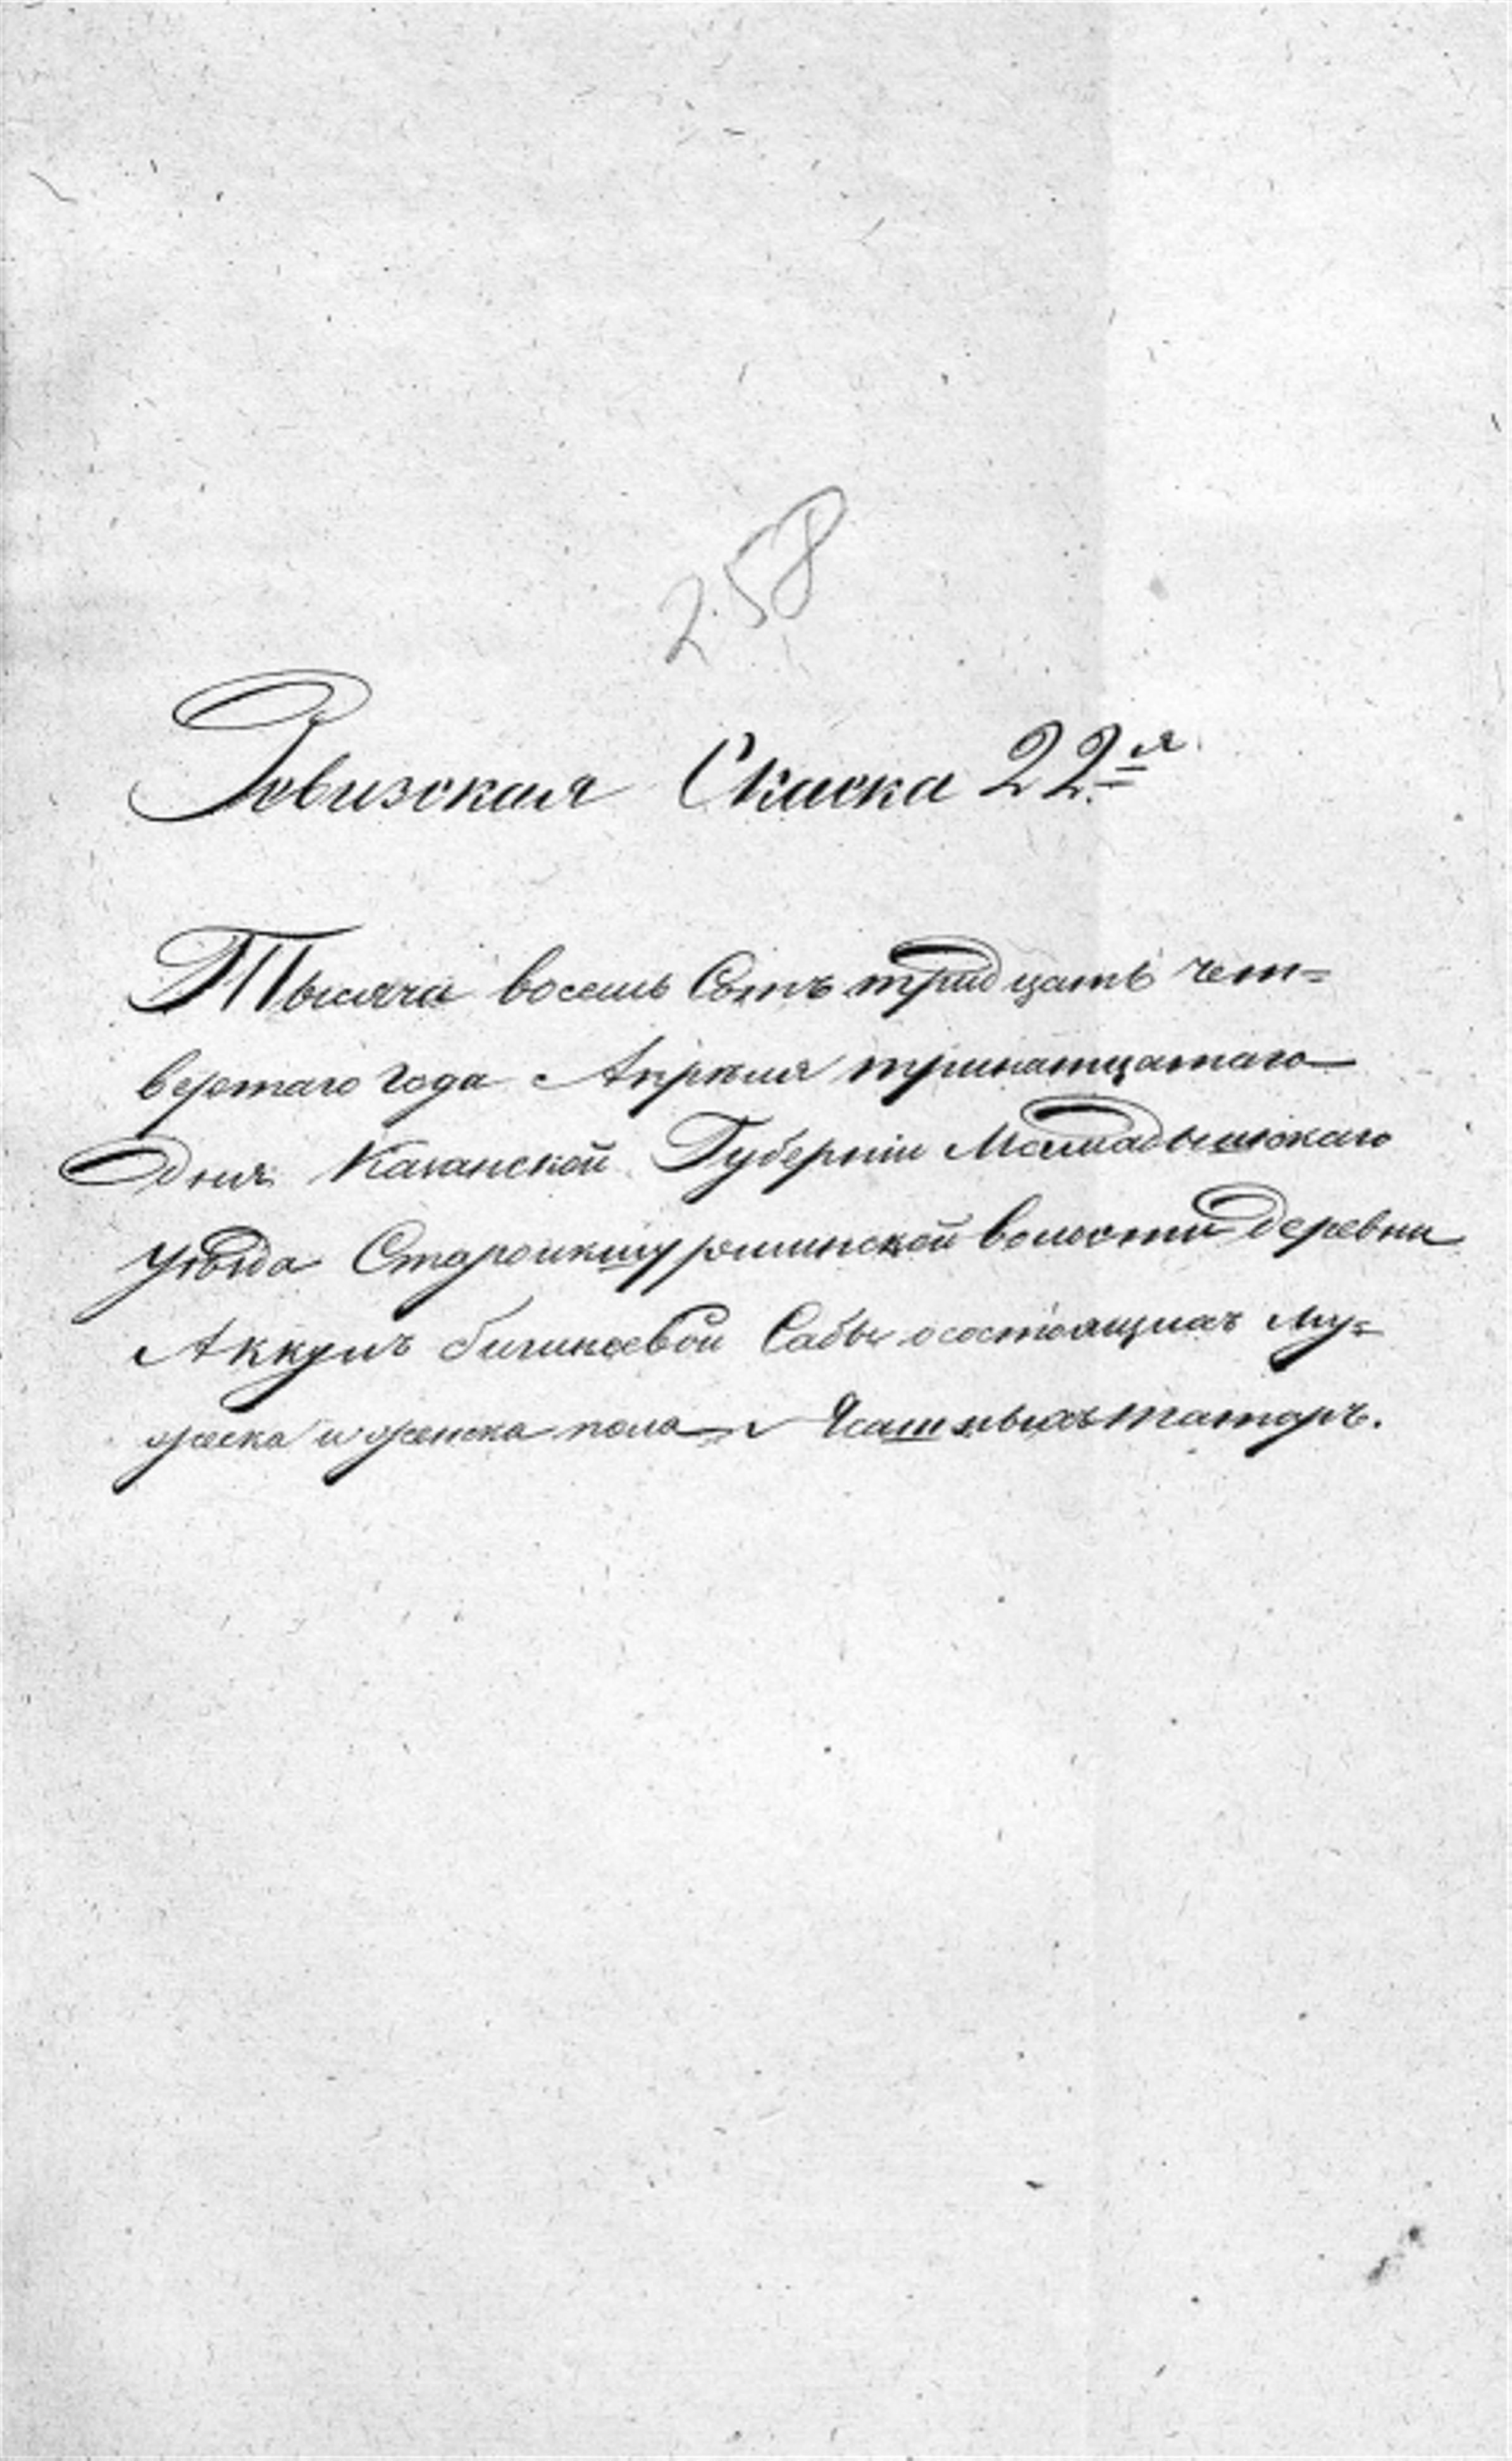 258
Ревизская Скаска 22ᵃя
Тысяча восемь Сотъ тридцать чет=
вертаго года Апреля тринатцатаго
Дня Казанской Губернiи Мамадышскаго
уѣзда Староикшурминской волости деревни
Аккуль бигинеевой Сабы осостоящихъ му=
жеска и женска пола Ясашныхъ татаръ.